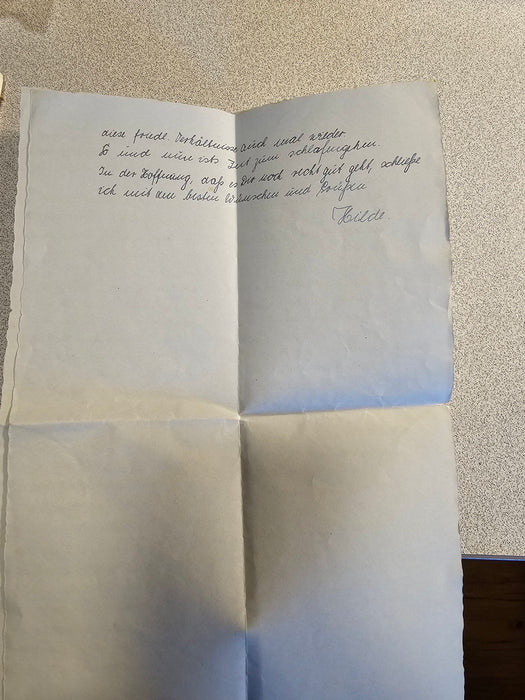 diese friedl. Verhältnisse auch mal wieder.
So und nun ists Zeit zum schlafengehen.
In der Hoffnung, daß es Dir noch recht gut geht, schließe
ich mit den besten Wünschen und Grüßen
Hilde.